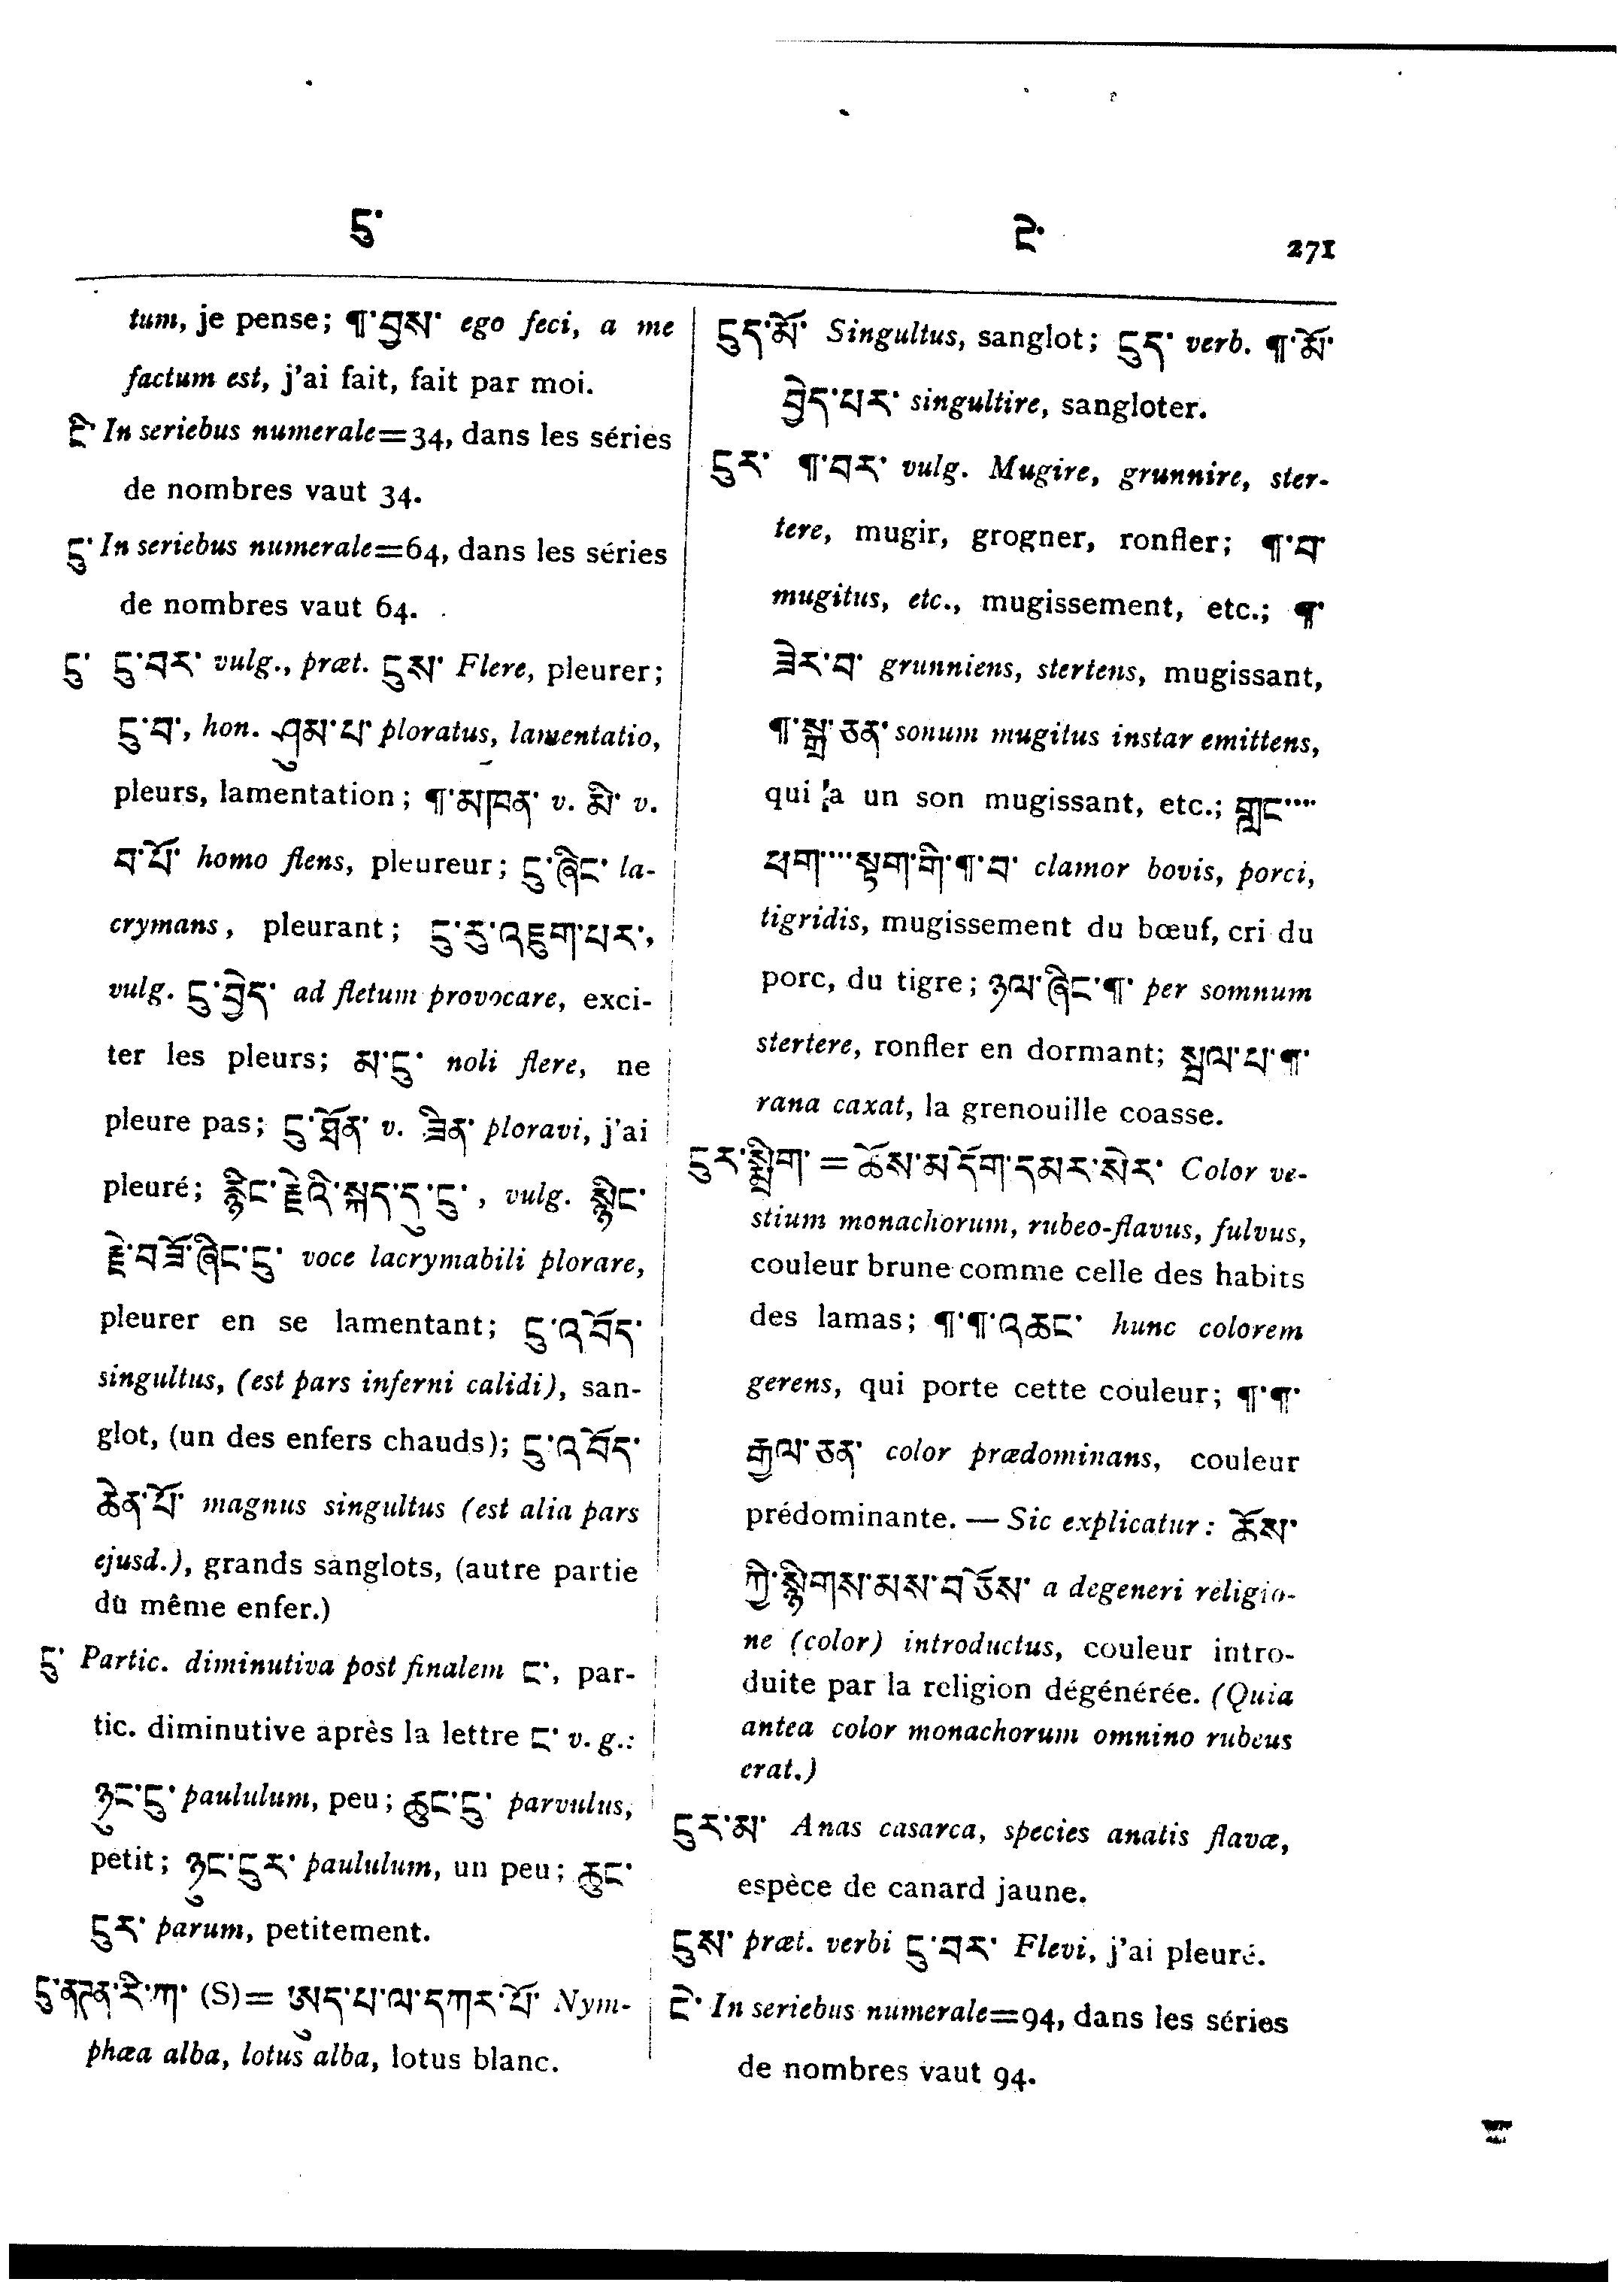 ངུ་
ངེ་ 271
tum, je pense; ¶་བྱས་ ego feci, a me
factum est, j'ai fait, fait par moi.
ངི་ In seriebus numerale=34, dans les séries
de nombres vaut 34.
ངུ་ In seriebus numerale=64, dans les séries
de nombres vaut 64.
ངུ་ ངུ་བར་ vulg., præt. ངུས་ Flere, pleurer;
ངུ་བ་, hon. ཤུམ་པ་ ploratus, lamentatio,
pleurs, lamentation; ¶་མཁན་ v. མི་ v.
བ་པོ་ homo flens, pleureur; ངུ་ཞིང་ la-
crymans, pleurant; ངུ་རུ་འཇུག་པར་,
vulg. ངུ་བྱེད་ ad fletum provocare, exci-
ter les pleurs; མ་ངུ་ noli flere, ne
pleure pas; ངུ་ཐོན་ v. ཟིན་ ploravi, j'ai
pleuré; སྙིང་རྗེའི་སྐད་དུ་ངུ་, vulg. སྙིང་
རྗེ་བཟོ་ཞིང་ངུ་ voce lacrymabili plorare,
pleurer en se lamentant; ངུ་འབོད་
singultus, (est pars inferni calidi), san-
glot, (un des enfers chauds); ངུ་འབོད་
ཆེན་པོ་ magnus singultus (est alia pars
ejusd.), grands sanglots, (autre partie
du même enfer.)
ངུ་ Partic. diminutiva post finalem ང་, par-
tic. diminutive après la lettre ང་ v. g.:
ཉུང་ངུ་ paululum, peu; ཆུང་ངུ་ parvulus,
petit; ཉུང་ངུར་ paululum, un peu; ཆུང་
ངུར་ parum, petitement.
ངུ་ནཎན་རི་ཀ་ (S)= ཨུད་པ་ལ་དཀར་པོ་ Nym-
phæa alba, lotus alba, lotus blanc.
ངུད་མོ་ Singultus, sanglot; ངུད་ verb. ¶་མོ་
བྱེད་པར་ singultire, sangloter.
ངུར་ ¶་བར་ vulg. Mugire, grunnire, ster-
tere, mugir, grogner, ronfler; ¶་བ་
mugitus, etc., mugissement, etc.; ¶་
ཟེར་བ་ grunniens, stertens, mugissant,
¶་སྒྲ་ཅན་ sonum mugitus instar emittens,
qui a un son mugissant, etc.; གླང་···
ཕག་···སྟག་གི་¶་བ་ clamor bovis, porci,
tigridis, mugissement du bœuf, cri du
porc, du tigre; ཉལ་ཞིང་¶་ per somnum
stertere, ronfler en dormant; སྦལ་པ་¶་
rana caxat, la grenouille coasse.
ངུར་སྨྲིག་ = ཆོས་མདོག་དམར་སེར་ Color ve-
stium monachorum, rubeo-flavus, fulvus,
couleur brune comme celle des habits
des lamas; ¶་¶་འཆང་ hunc colorem
gerens, qui porte cette couleur; ¶་¶་
རྒྱལ་ཅན་ color prædominans, couleur
prédominante. — Sic explicatur: ཆོས་
ཀྱི་སྙིགས་མས་བཅོས་ a degeneri religio-
ne (color) introductus, couleur intro-
duite par la religion dégénérée. (Quia
antea color monachorum omnino rubeus
erat.)
ངུར་མ་ Anas casarca, species anatis flavæ,
espèce de canard jaune.
ངུས་ præt. verbi ངུ་བར་ Flevi, j'ai pleuré.
ངེ་ In seriebus numerale=94, dans les séries
de nombres vaut 94.